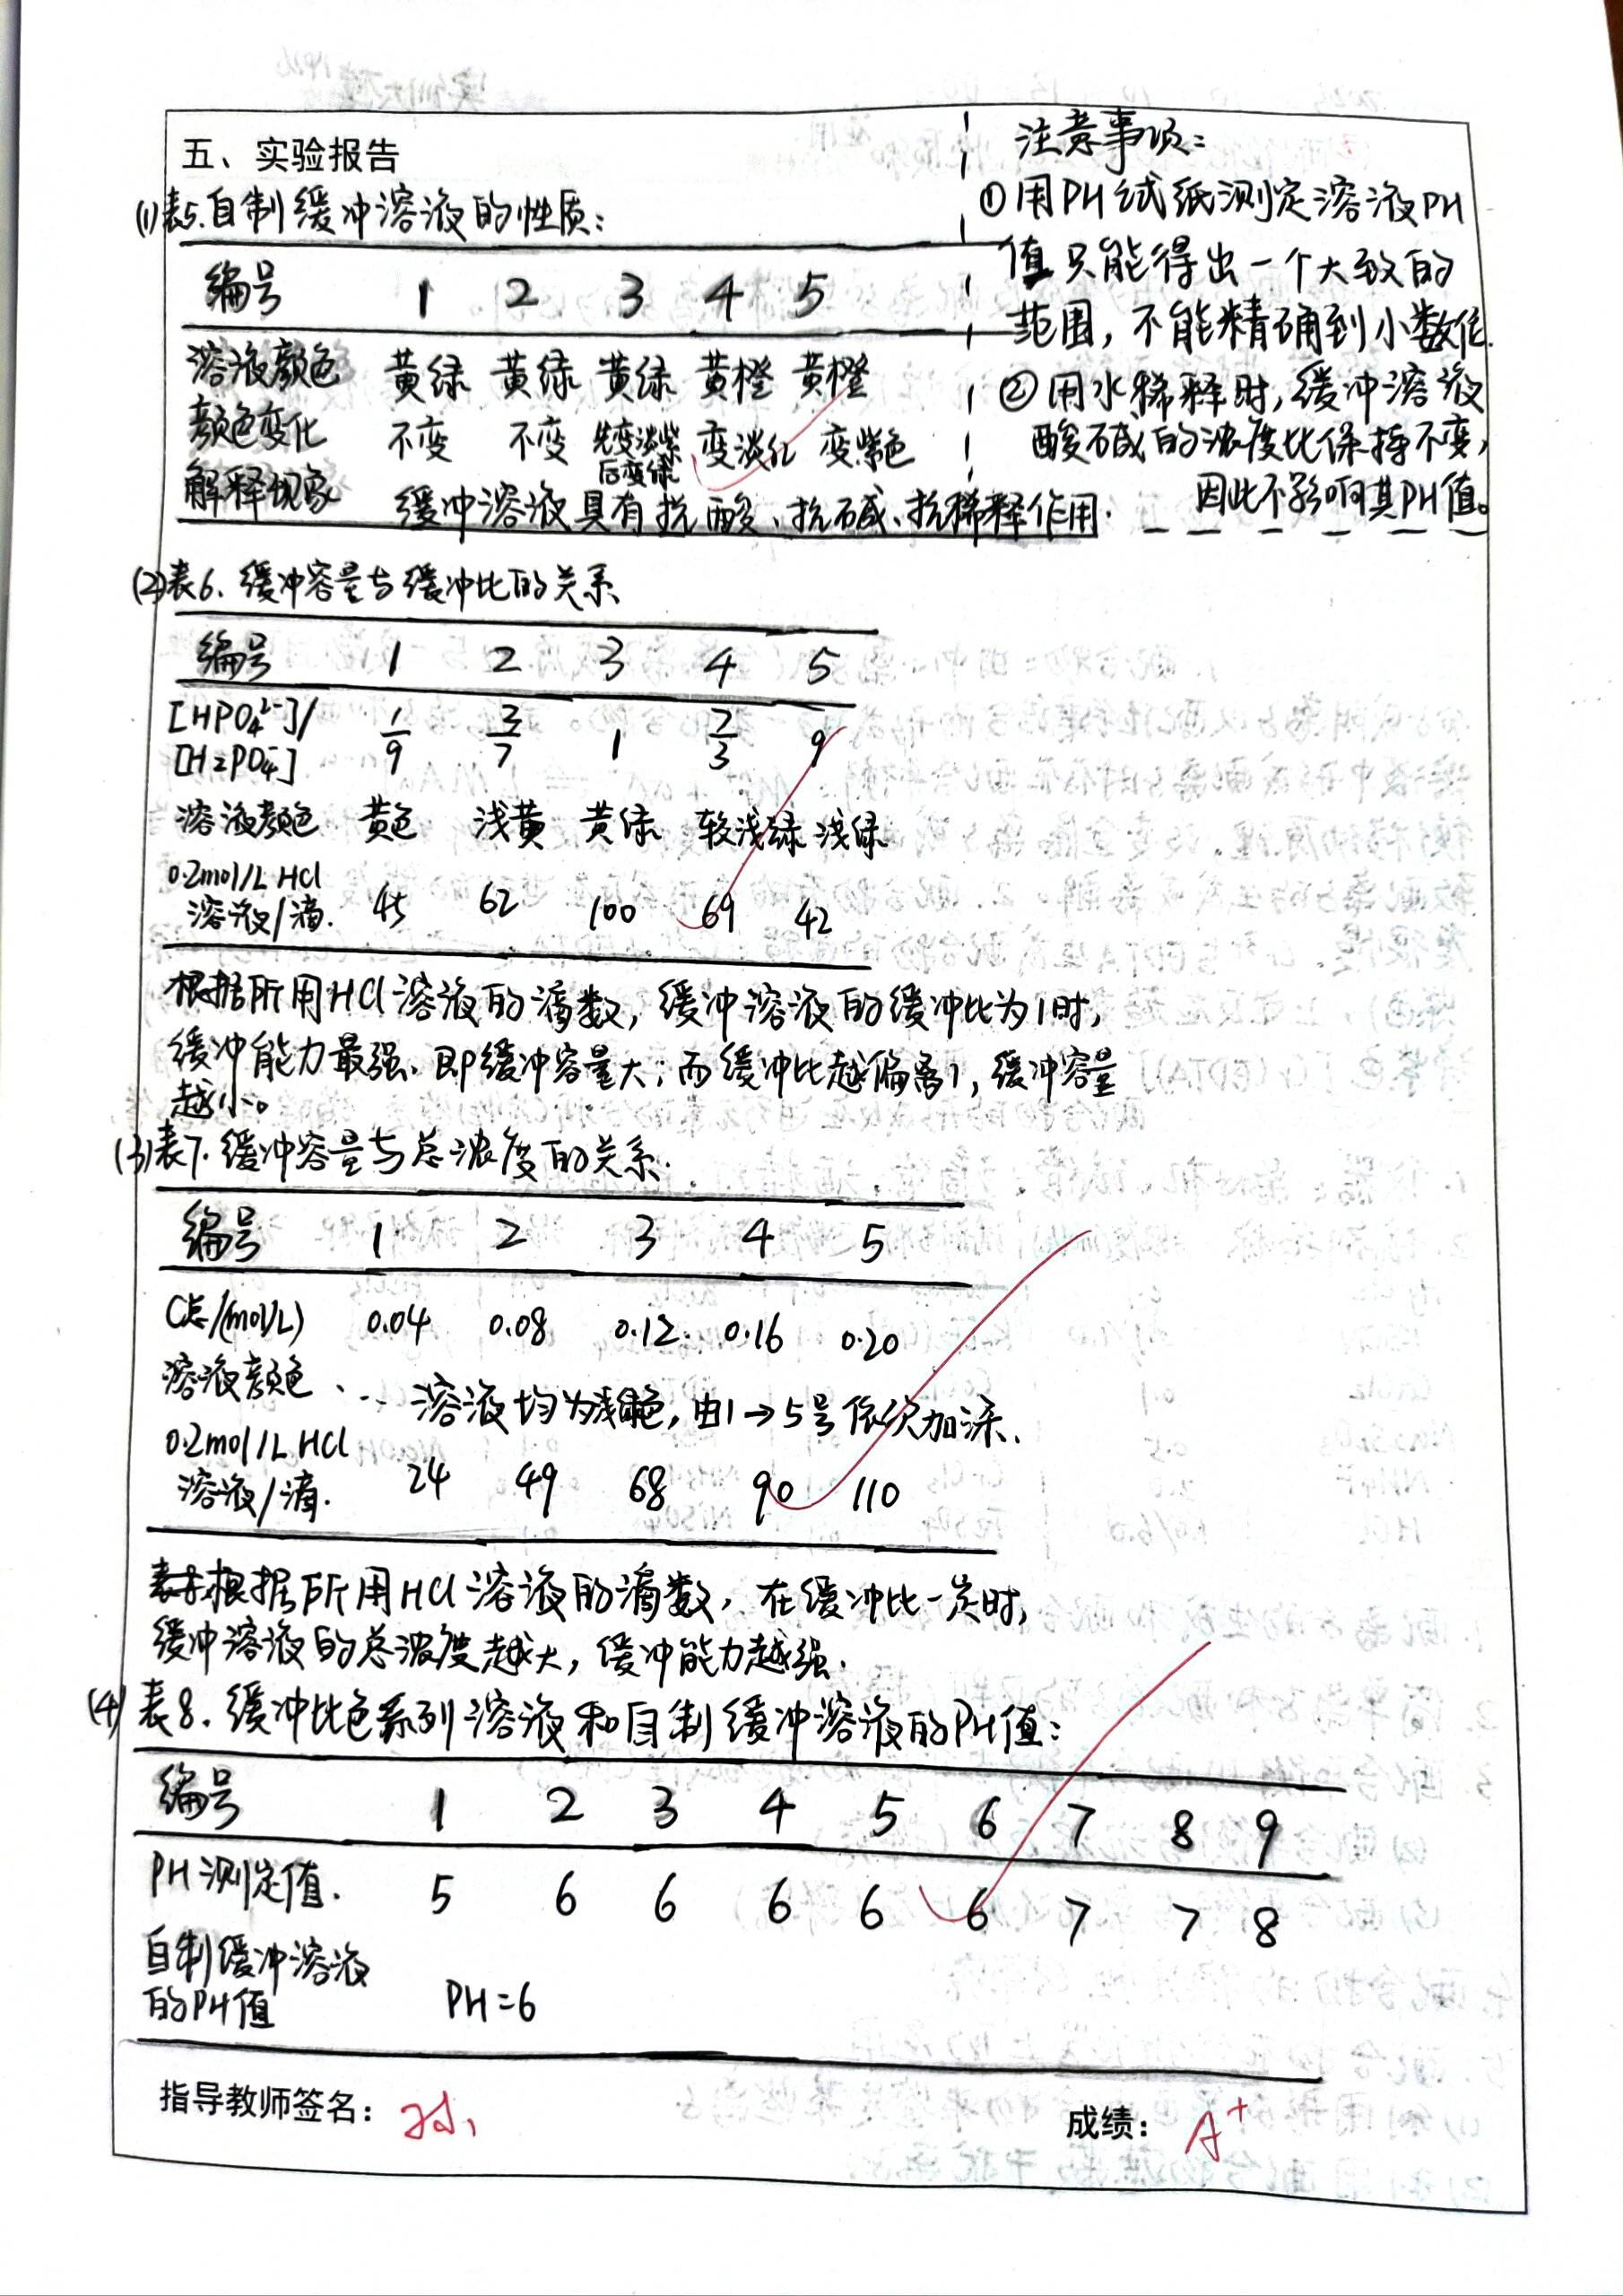 五、实验报告
(1)表5.自制缓冲溶液的性质:
编号 1 2 3 4 5
溶液颜色 黄绿 黄绿 黄绿 黄橙 黄橙
颜色变化 不变 不变 先变淡紫后变绿 变淡红 变紫色
解释现象 缓冲溶液具有抗酸、抗碱、抗稀释作用.
注意事项:
①用PH试纸测定溶液PH
值只能得出一个大致的
范围,不能精确到小数位.
②用水稀释时,缓冲溶液
酸碱的浓度比保持不变,
因此不影响其PH值。
(2)表6.缓冲容量与缓冲比的关系
编号 1 2 3 4 5
[HPO₄²⁻]/[H₂PO₄⁻] 1/9 3/7 1 7/3 9
溶液颜色 黄色 浅黄 黄绿 较浅绿 浅绿
0.2mol/L HCl
溶液/滴. 45 62 100 69 42
根据所用HCl溶液的滴数,缓冲溶液的缓冲比为1时,
缓冲能力最强.即缓冲容量大;而缓冲比越偏离1,缓冲容量
越小。
(3)表7.缓冲容量与总浓度的关系.
编号 1 2 3 4 5
C总/(mol/L) 0.04 0.08 0.12 0.16 0.20
溶液颜色 溶液均为浅色,由1→5号依次加深.
0.2mol/L HCl
溶液/滴. 24 49 68 90 110
根据所用HCl溶液的滴数,在缓冲比一定时,
缓冲溶液的总浓度越大,缓冲能力越强.
(4)表8.缓冲比色系列溶液和自制缓冲溶液的PH值:
编号 1 2 3 4 5 6 7 8 9
PH测定值. 5 6 6 6 6 6 7 7 8
自制缓冲溶液
的PH值 PH=6
指导教师签名:
成绩: A+